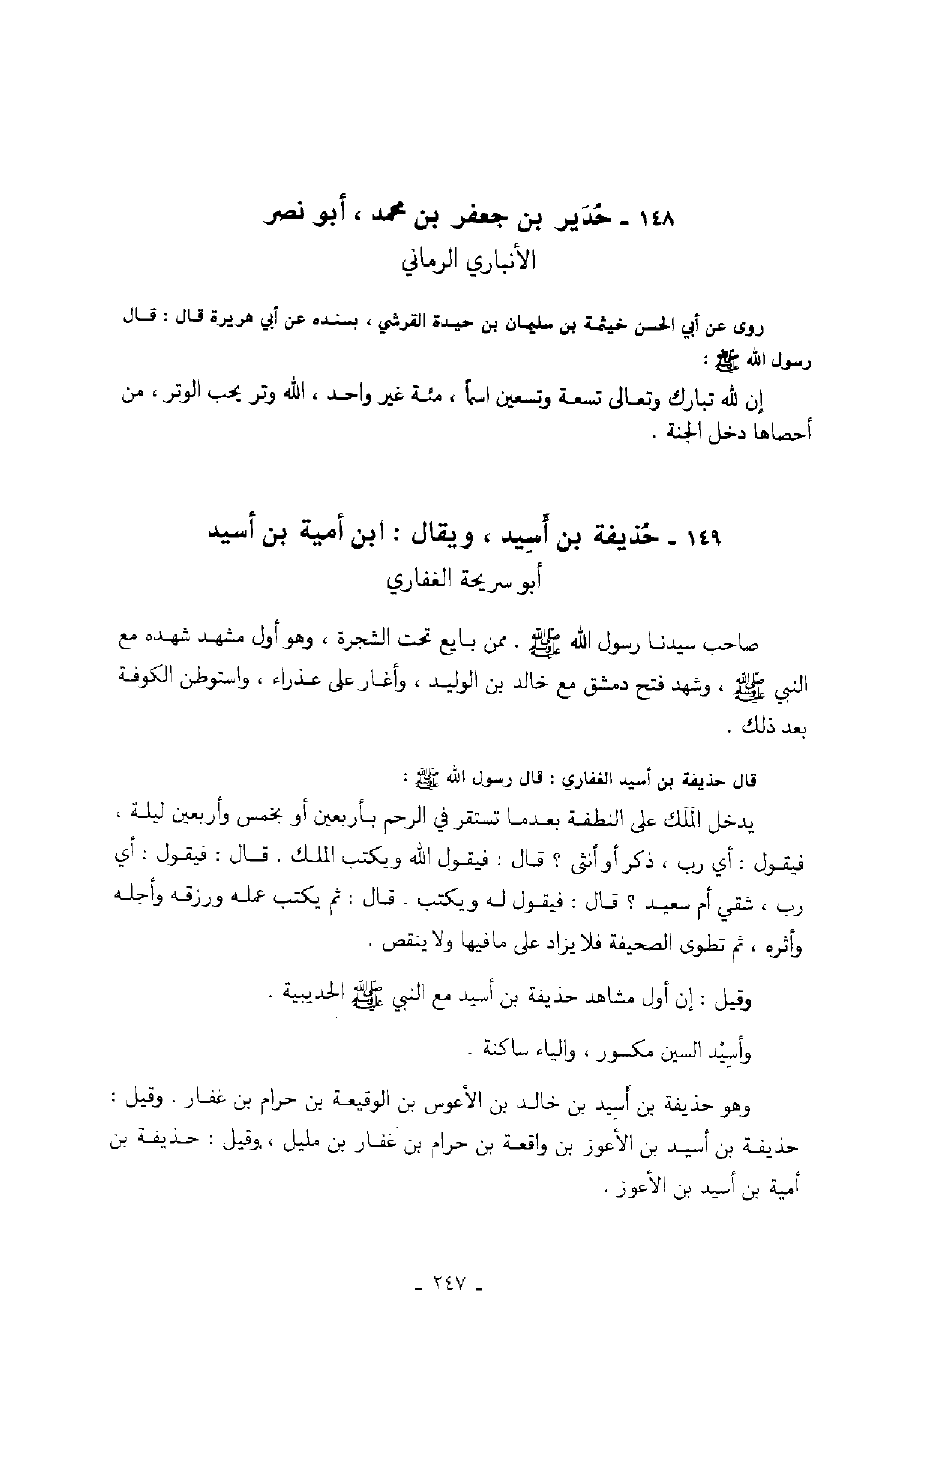 ١٤٨ - حُدَير بن جعفر بن محمد ، أبو نصر
الأنباري الرماني
روى عن أبي الحسن خيثمة بن سليمان بن حيدة القرشي ، بسنده عن أبي هريرة قال : قال
رسول الله ﷺ :
إن لله تبارك وتعالى تسعة وتسعين اسماً ، مئة غير واحد ، الله وتر يحب الوتر ، من
أحصاها دخل الجنة .
١٤٩ - حُذيفة بن أَسِيد ، ويقال : ابن أمية بن أسيد
أبو سريحة الغفاري
صاحب سيدنا رسول الله ﷺ . ممن بايع تحت الشجرة ، وهو أول مشهد شهده مع
النبي ﷺ ، وشهد فتح دمشق مع خالد بن الوليد ، وأغار على عذراء ، واستوطن الكوفة
بعد ذلك .
قال حذيفة بن أسيد الغفاري : قال رسول الله ﷺ :
يدخل الملك على النطفة بعدما تستقر في الرحم بأربعين أو بخمس وأربعين ليلة ،
فيقول : أي رب ، ذكر أو أنثى ؟ قال : فيقول الله ويكتب الملك . قال : فيقول : أي
رب ، شقي أم سعيد ؟ قال : فيقول له ويكتب . قال : ثم يكتب عمله ورزقه وأجله
وأثره ، ثم تطوى الصحيفة فلا يزاد على مافيها ولا ينقص .
وقيل : إن أول مشاهد حذيفة بن أسيد مع النبي ﷺ الحديبية .
وأسِيْد السين مكسور ، والياء ساكنة .
وهو حذيفة بن أَسِيد بن خالد بن الأعوس بن الوقيعة بن حرام بن غفار . وقيل :
حذيفة بن أسيد بن الأعوز بن واقعة بن حرام بن غفار بن مليل ، وقيل : حذيفة بن
أمية بن أسيد بن الأعوز .
- ٢٤٧ -